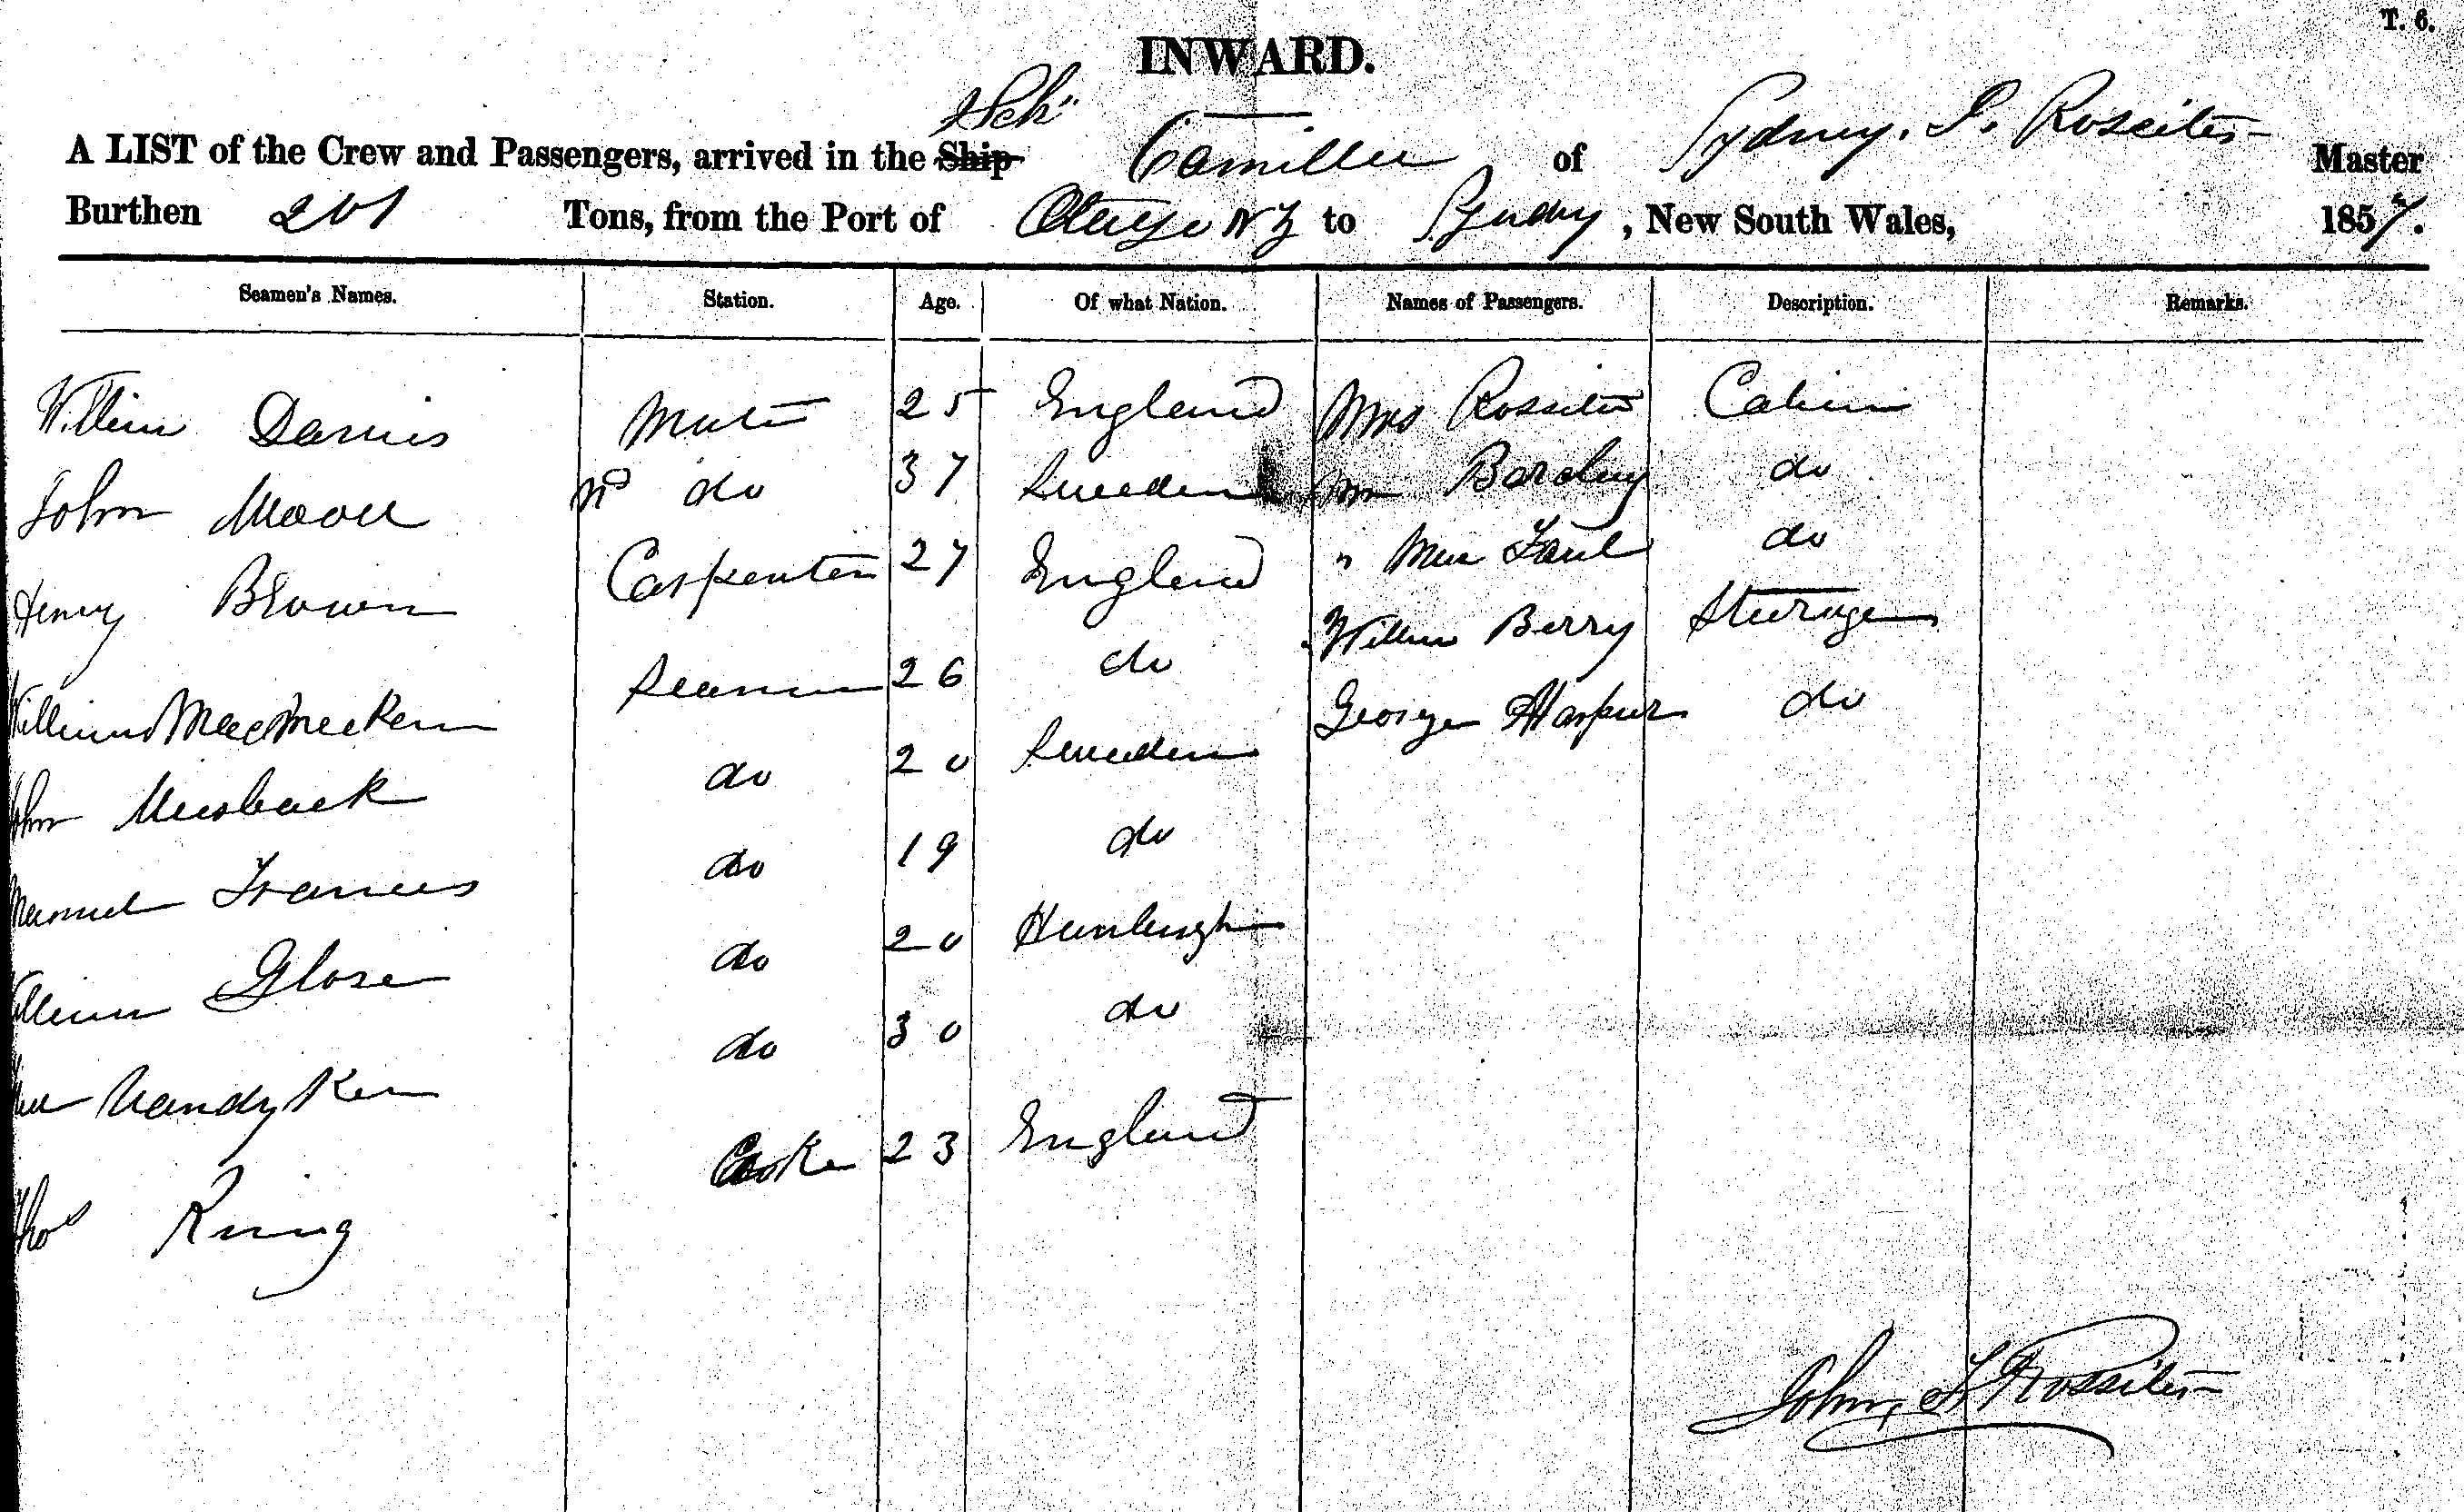 T. 6.
INWARD.
Schr
A LIST of the Crew and Passengers, arrived in the Ship Camilla of Sydney, J. Rossiter Master
Burthen 201 Tons, from the Port of Otago NZ to Sydney, New South Wales, 1857.
Seamen's Names. Station. Age. Of what Nation. Names of Passengers. Description. Remarks.
William Mate 25 England Mrs Rossiter Cabin
John Moore do 37 Sweeden Barclay do
Henry Brown Carpenter 27 England do
William Seaman 26 do William Berry Steerage
John do 20 Sweeden George Harpur do
Francis do 19 do
William Glose do 20 Hamburgh
Vandyken do 30 do
Thos King Cooke 23 England
John F Rossiter